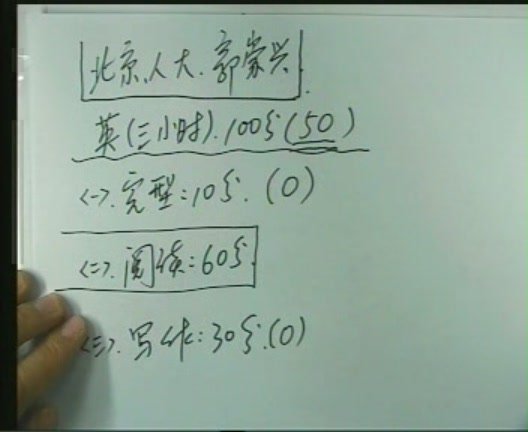 北京.人大.郭崇兴.
英(三小时).100分(50)
<一>.完型:10分.(0)
<二>.阅读:60分.
<三>.写作:30分.(0)